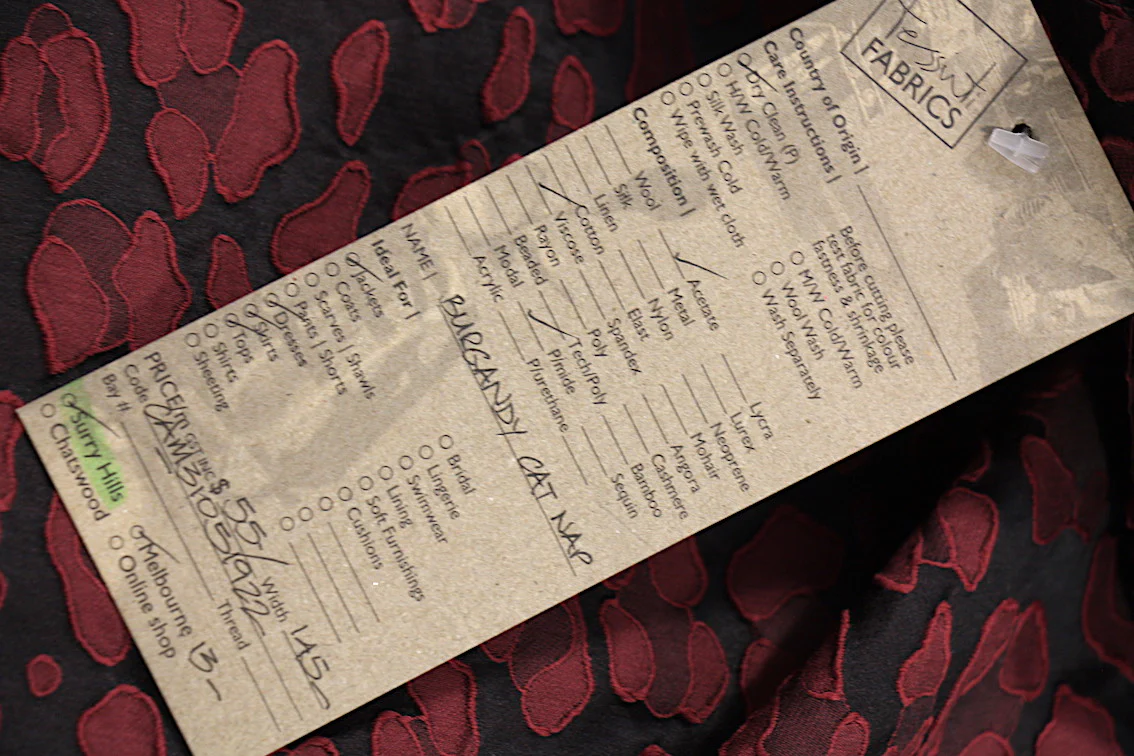 Tessuti
FABRICS
Country of Origin |
Care Instructions |
Dry Clean (P)
H/W Cold/Warm
Silk Wash
Prewash Cold
Wipe with wet cloth
Before cutting please
test fabric for colour
fastness & shrinkage
M/W Cold/Warm
Wool Wash
Wash Separately
Composition |
Wool
Silk
Linen
Cotton
Viscose
Rayon
Beaded
Modal
Acrylic
Acetate
Metal
Nylon
Elast
Spandex
Poly
Tech/Poly
P/mide
P/urethane
Lycra
Lurex
Neoprene
Mohair
Angora
Cashmere
Bamboo
Sequin
NAME | BURGANDY CAT NAP
Ideal For |
Jackets
Coats
Scarves | Shawls
Pants | Shorts
Dresses
Skirts
Tops
Shirts
Sheeting
Bridal
Lingerie
Swimwear
Lining
Soft Furnishings
Cushions
PRICE/m GST INC $ 55/ Width 145
Code CAM31051922
Bay # Thread
Surry Hills Melbourne 13
Chatswood Online shop